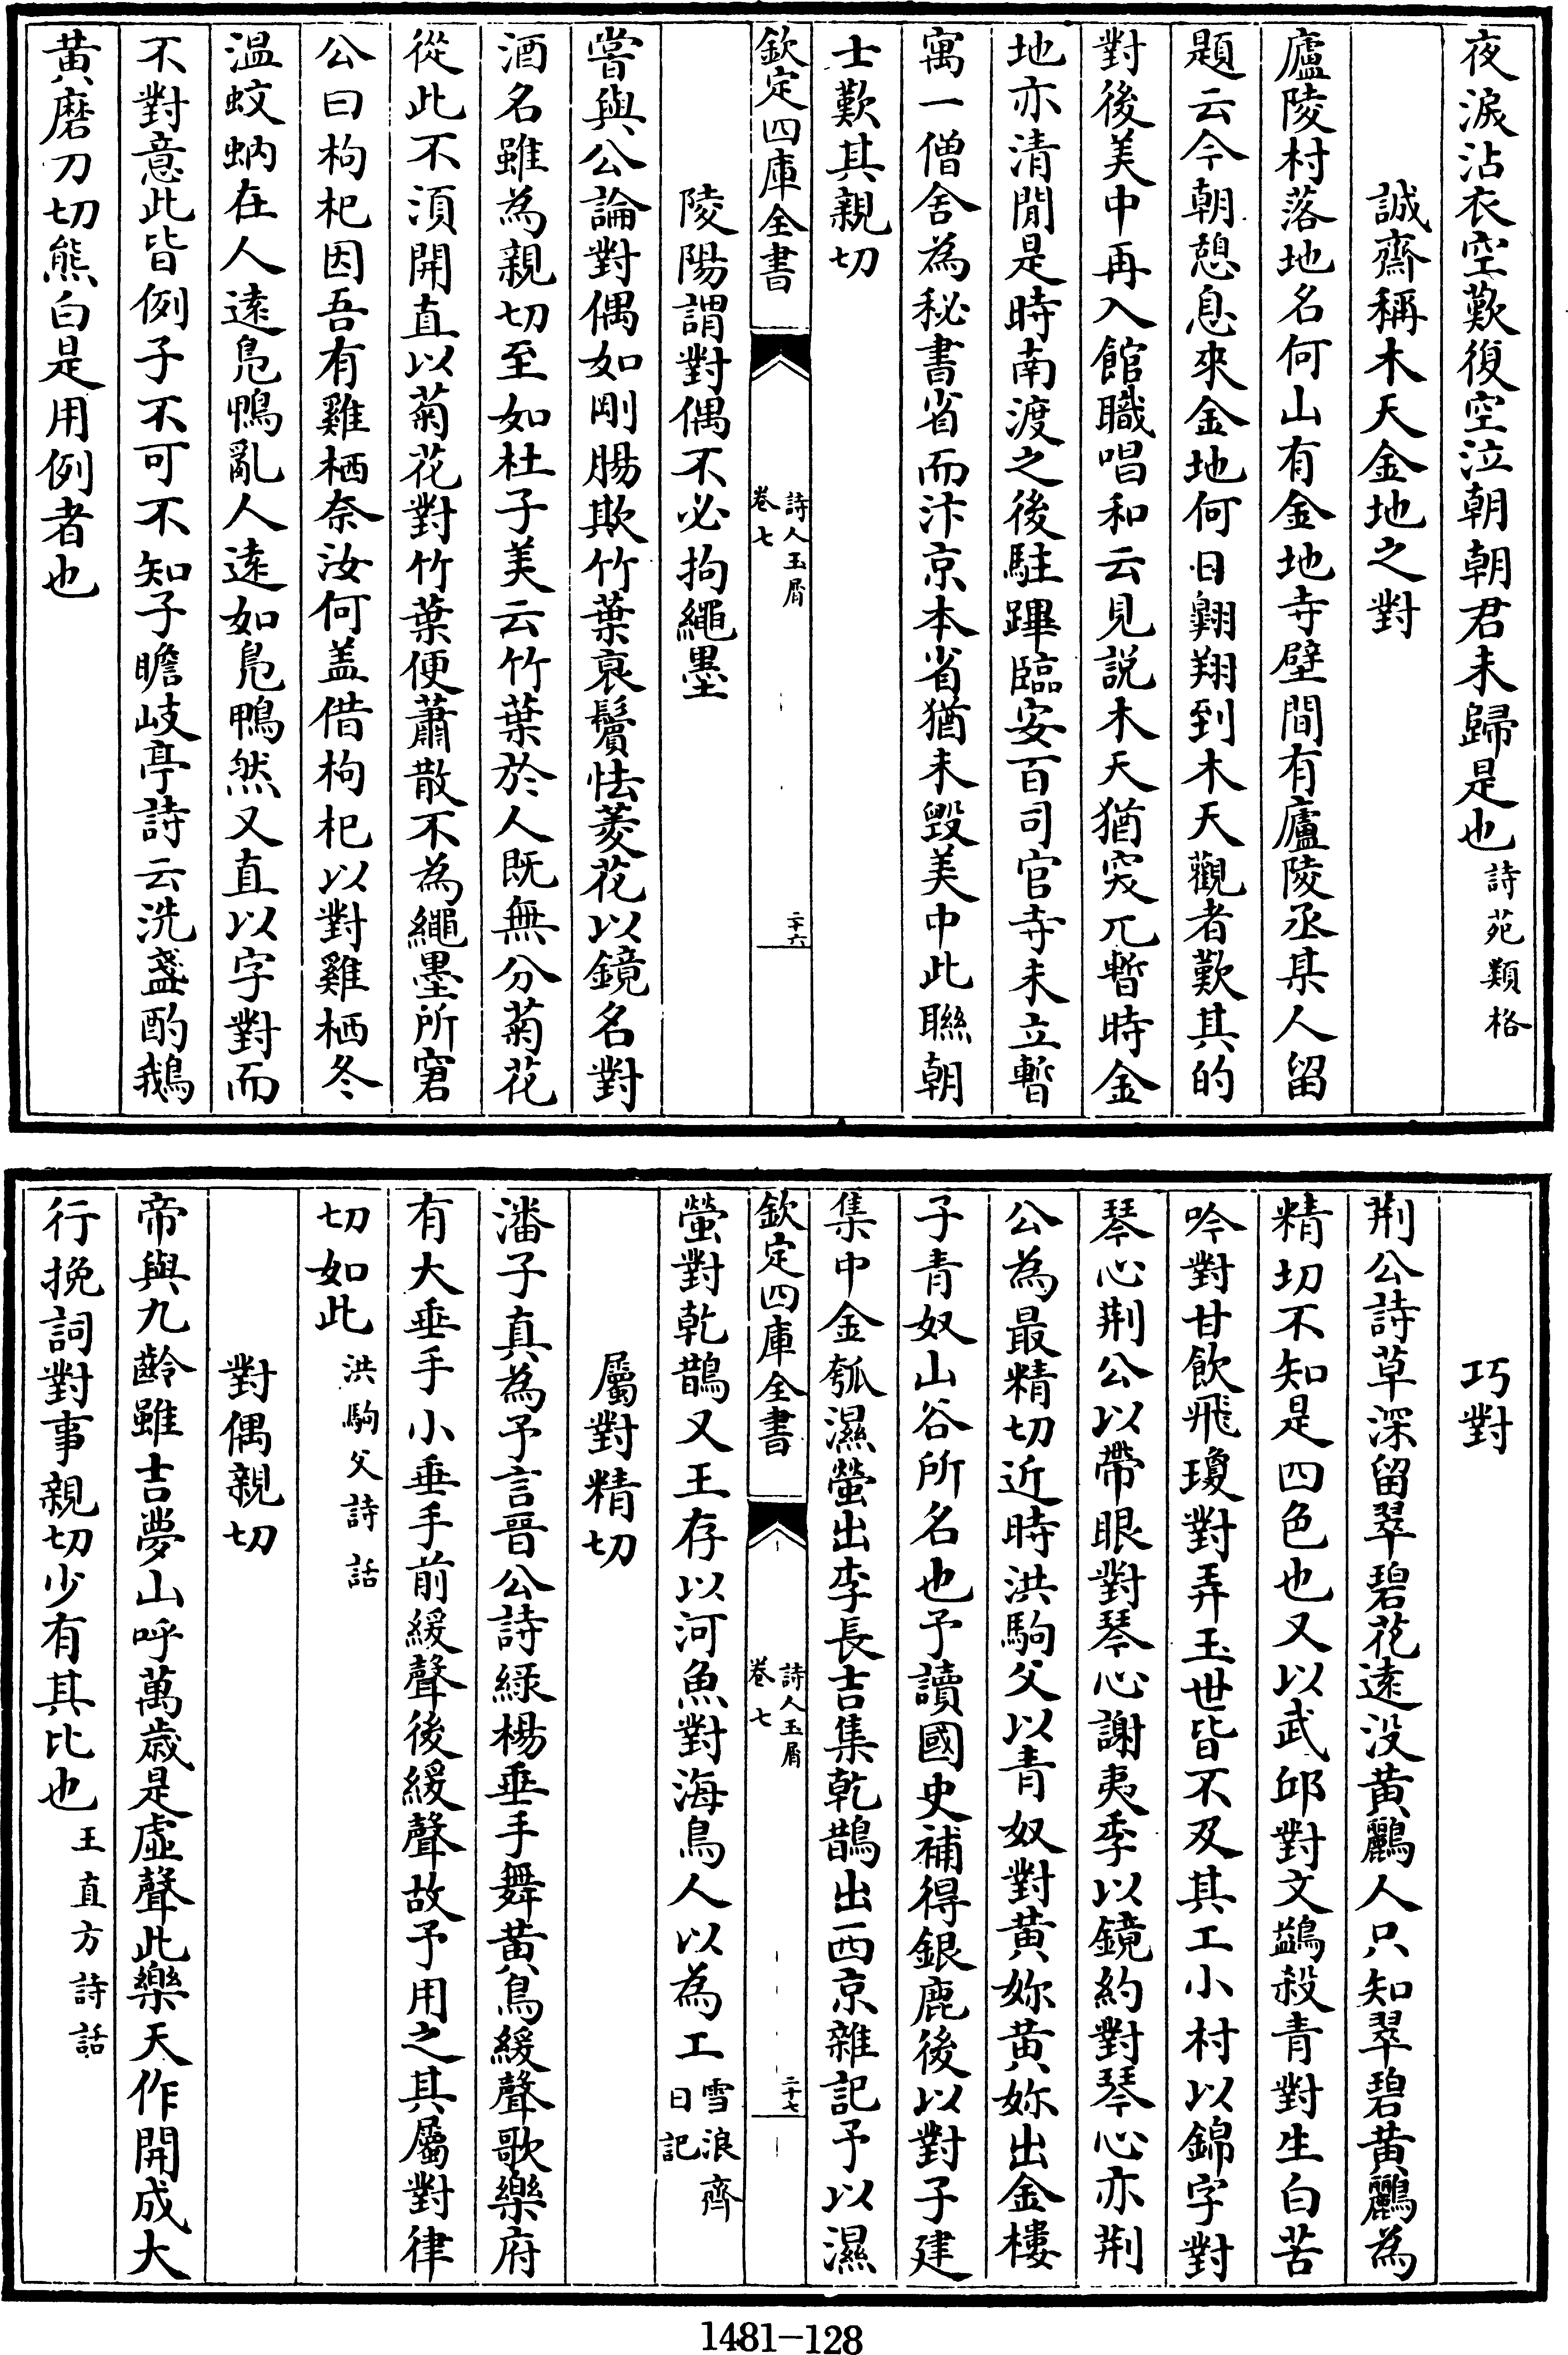 夜淚沾衣空歎復空泣朝朝君未歸是也詩苑類格
誠齋稱木天金地之對
廬陵村落地名何山有金地寺壁間有廬陵丞某人留
題云今朝憩息來金地何日翺翔到木天觀者歎其的
對後美中再入館職唱和云見説木天猶突兀暫時金
地亦清閒是時南渡之後駐蹕臨安百司官寺未立暫
寓一僧舍為秘書省而汴京本省猶未毀美中此聯朝
士歎其親切
欽定四庫全書
詩人玉屑
卷七
二十六
陵陽謂對偶不必拘繩墨
嘗與公論對偶如剛腸欺竹葉衰鬢怯菱花以鏡名對
酒名雖為親切至如杜子美云竹葉於人既無分菊花
從此不須開直以菊花對竹葉便蕭散不為繩墨所窘
公曰枸杞因吾有雞栖奈汝何盖借枸杞以對雞栖冬
温蚊蚋在人遠鳬鴨亂人遠如鳬鴨然又直以字對而
不對意此皆例子不可不知子瞻岐亭詩云洗盞酌鵝
黄磨刀切熊白是用例者也
巧對
荆公詩草深留翠碧花遠没黄鸝人只知翠碧黄鸝為
精切不知是四色也又以武邱對文鷁殺青對生白苦
吟對甘飲飛瓊對弄玉世皆不及其工小村以錦字對
琴心荆公以帶眼對琴心謝夷季以鏡約對琴心亦荆
公為最精切近時洪駒父以青奴對黄妳黄妳出金樓
子青奴山谷所名也予讀國史補得銀鹿後以對子建
集中金瓠濕螢出李長吉集乾鵲出西京雜記予以濕
欽定四庫全書
詩人玉屑
卷七
二十七
螢對乾鵲又王存以河魚對海鳥人以為工雪浪齋日記
屬對精切
潘子真為予言晉公詩緑楊垂手舞黄鳥緩聲歌樂府
有大垂手小垂手前緩聲後緩聲故予用之其屬對律
切如此洪駒父詩話
對偶親切
帝與九齡雖吉夢山呼萬歲是虚聲此樂天作開成大
行挽詞對事親切少有其比也王直方詩話
1481-128